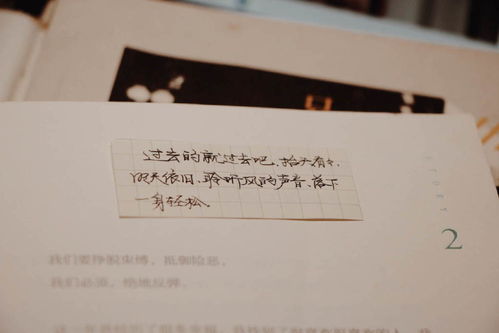 过去的就过去吧.抬头看去.
明天依旧.聆听风的声音.落下
一身轻松.
STORY
2
我们要挣脱束缚，抵御险恶，
我们必须，绝地反弹。